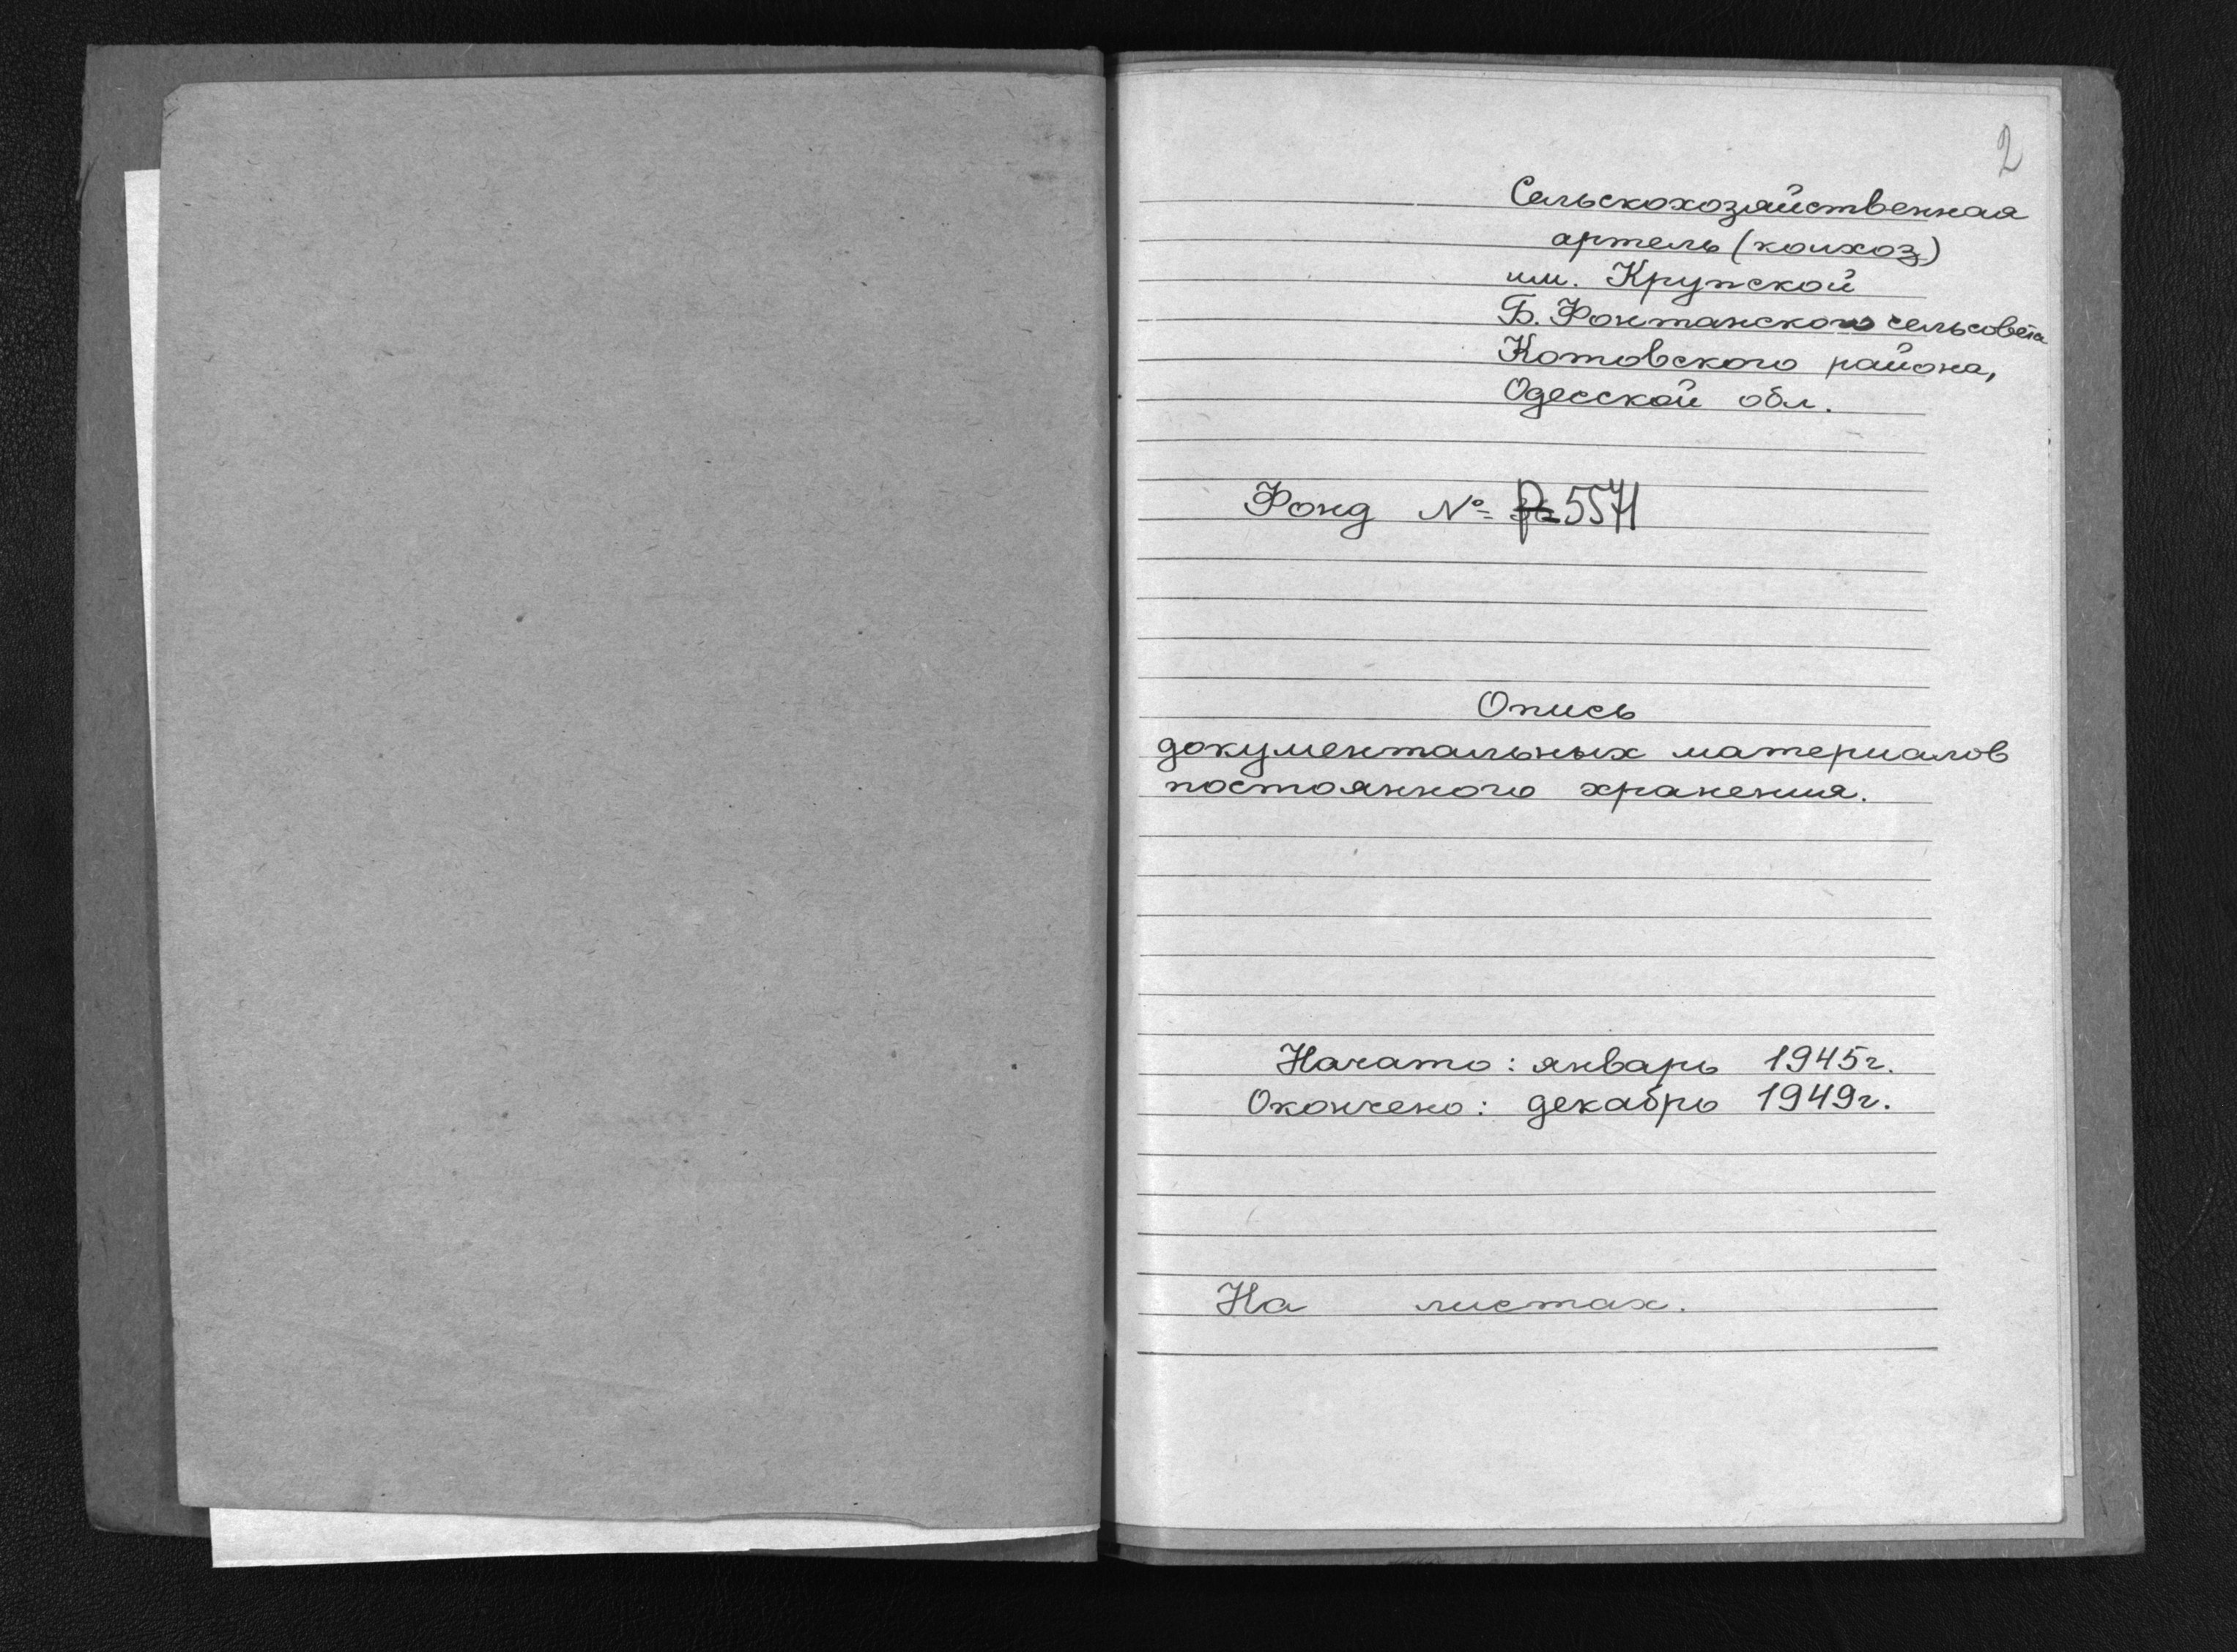 2
Сельскохозяйственная
артель (колхоз)
им. Крупской
Б. Фонтанского сельсовета
Котовского района,
Одесской обл.
Фонд № Р-5571
Опись
документальных материалов
постоянного хранения.
Начато: январь 1945г.
Окончено: декабрь 1949г.
На листах.